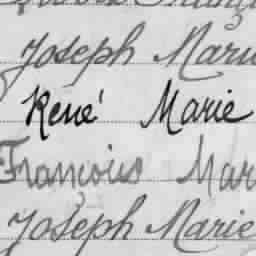 Joseph Marie
René Marie
François Mar
Joseph Marie